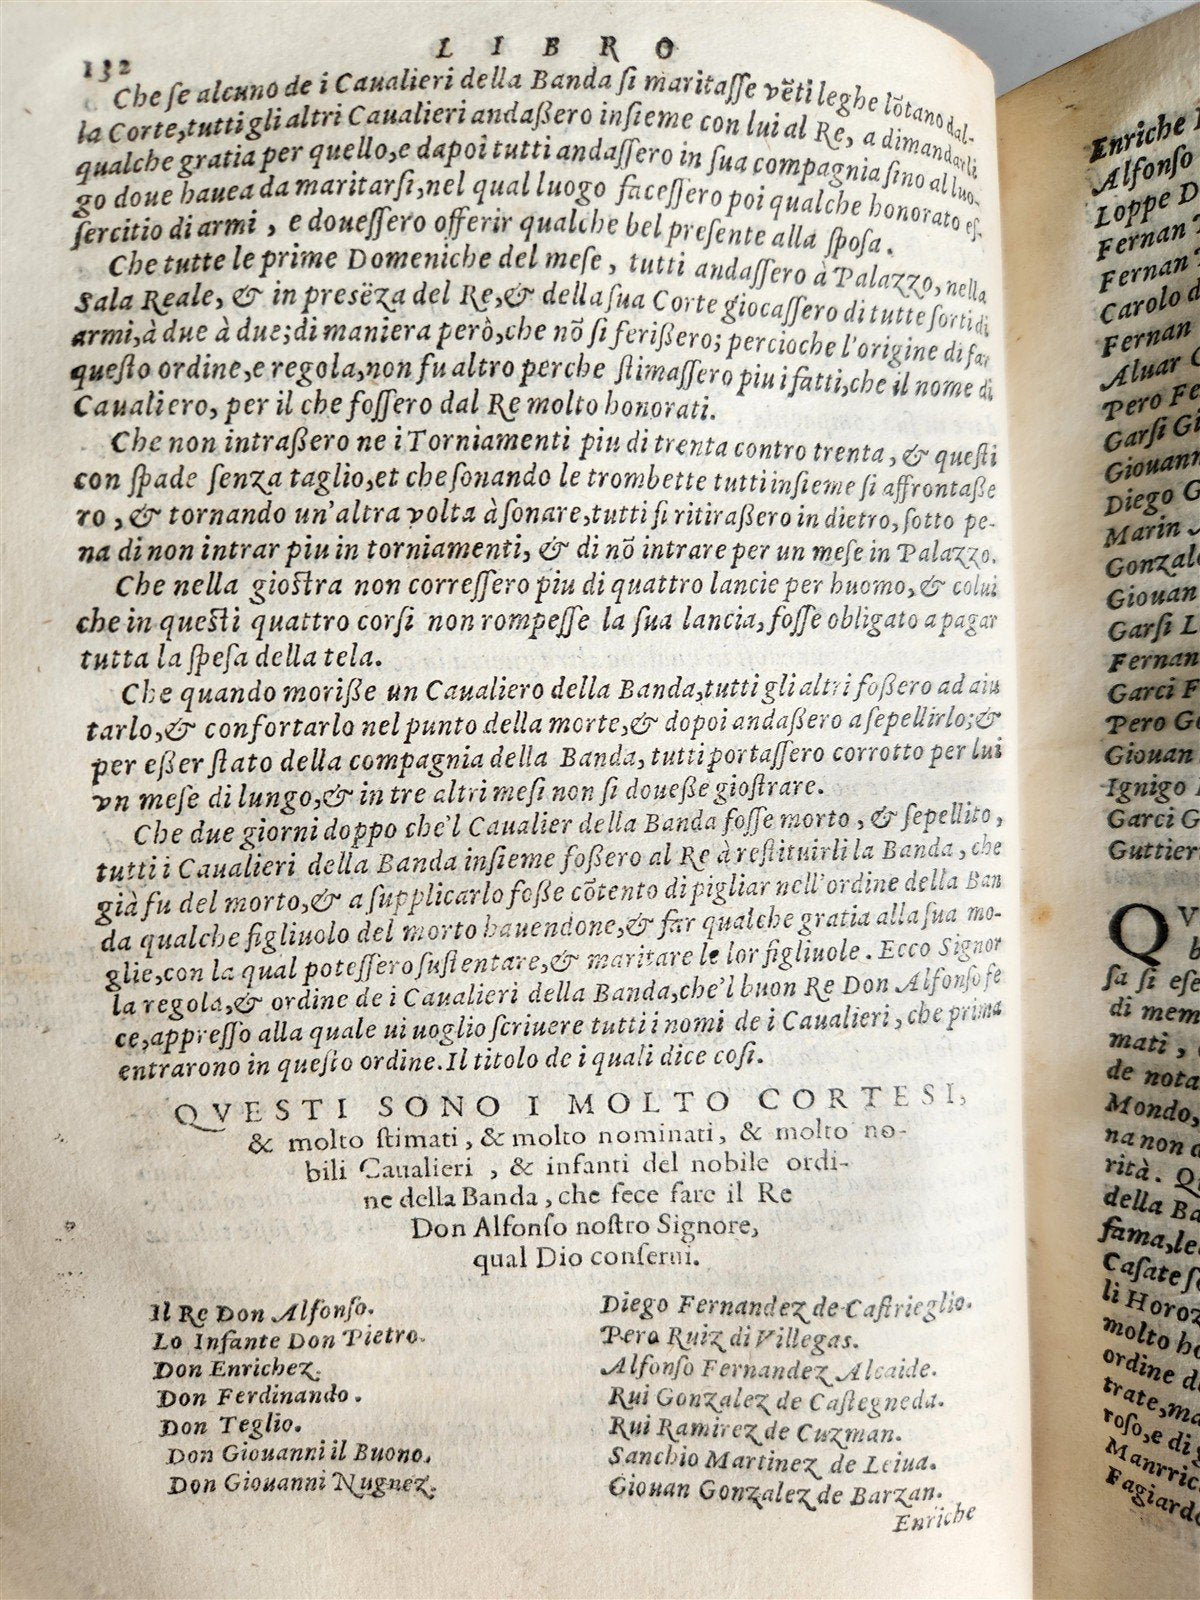 132
LIBRO
Che se alcuno de i Caualieri della Banda si maritasse vẽti leghe lõtano dal-
la Corte, tutti gli altri Caualieri andaßero insieme con lui al Re, a dimandarli
qualche gratia per quello, e dapoi tutti andassero in sua compagnia sino al luo-
go doue hauea da maritarsi, nel qual luogo facessero poi qualche honorato es-
sercitio di armi, e douessero offerir qualche bel presente alla sposa.
Che tutte le prime Domeniche del mese, tutti andassero à Palazzo, nella
Sala Reale, & in presẽza del Re, & della sua Corte giocassero di tutte sorti di
armi, à due à due; di maniera però, che nõ si ferißero; percioche l'origine di far
questo ordine, e regola, non fu altro perche stimassero piu i fatti, che il nome di
Caualiero, per il che fossero dal Re molto honorati.
Che non intraßero ne i Torniamenti piu di trenta contro trenta, & questi
con spade senza taglio, et che sonando le trombette tutti insieme si affrontaße
ro, & tornando un'altra volta à sonare, tutti si ritiraßero in dietro, sotto pe-
na di non intrar piu in torniamenti, & di nõ intrare per un mese in Palazzo.
Che nella giostra non corressero piu di quattro lancie per huomo, & colui
che in questi quattro corsi non rompesse la sua lancia, fosse obligato a pagar
tutta la spesa della tela.
Che quando moriße un Caualiero della Banda, tutti gli altri foßero ad aiu
tarlo, & confortarlo nel punto della morte, & dopoi andaßero a sepellirlo; &
per eßer stato della compagnia della Banda, tutti portassero corrotto per lui
vn mese di lungo, & in tre altri mesi non si doueße giostrare.
Che due giorni doppo che'l Caualier della Banda fosse morto, & sepellito,
tutti i Caualieri della Banda insieme foßero al Re à restituirli la Banda, che
già fu del morto, & a supplicarlo foße cõtento di pigliar nell'ordine della Ban
da qualche figliuolo del morto hauendone, & far qualche gratia alla sua mo-
glie, con la qual potessero sustentare, & maritare le lor figliuole. Ecco Signor
la regola, & ordine de i Caualieri della Banda, che'l buon Re Don Alfonso fe
ce, appresso alla quale ui uoglio scriuere tutti i nomi de i Caualieri, che prima
entrarono in questo ordine. Il titolo de i quali dice cosi.
QVESTI SONO I MOLTO CORTESI,
& molto stimati, & molto nominati, & molto no-
bili Caualieri, & infanti del nobile ordi-
ne della Banda, che fece fare il Re
Don Alfonso nostro Signore,
qual Dio conserui.
Il Re Don Alfonso.
Lo Infante Don Pietro.
Don Enrichez.
Don Ferdinando.
Don Teglio.
Don Giouanni il Buono.
Don Giouanni Nugnez.
Diego Fernandez de Castrieglio.
Pero Ruiz di Villegas.
Alfonso Fernandez Alcaide.
Rui Gonzalez de Castegneda.
Rui Ramirez de Cuzman.
Sanchio Martinez de Leiua.
Giouan Gonzalez de Barzan.
Enriche
Enriche
Alfonso
Loppe D
Fernan
Fernan
Carolo d
Fernan
Aluar
Pero Fe
Garsi Gi
Giouann
Diego G
Marin
Gonzale
Giouan
Garsi L
Fernan
Garci F
Pero Go
Giouan
Ignigo
Garci G
Guttier
QV
b
sa si ese
di mem
mati,
de nota
Mondo,
na non
rità. Q
della Ba
fama, le
Casate s
li Horoz
molto ho
ordine d
trate, ma
roso, e di
Manrric
Fagiardo